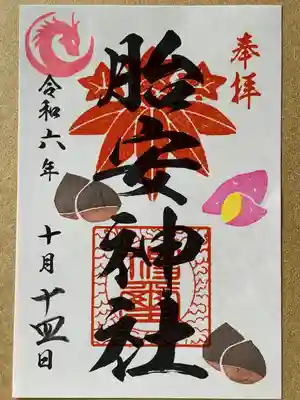 奉拝
胎安神社
令和六年
十月十四日